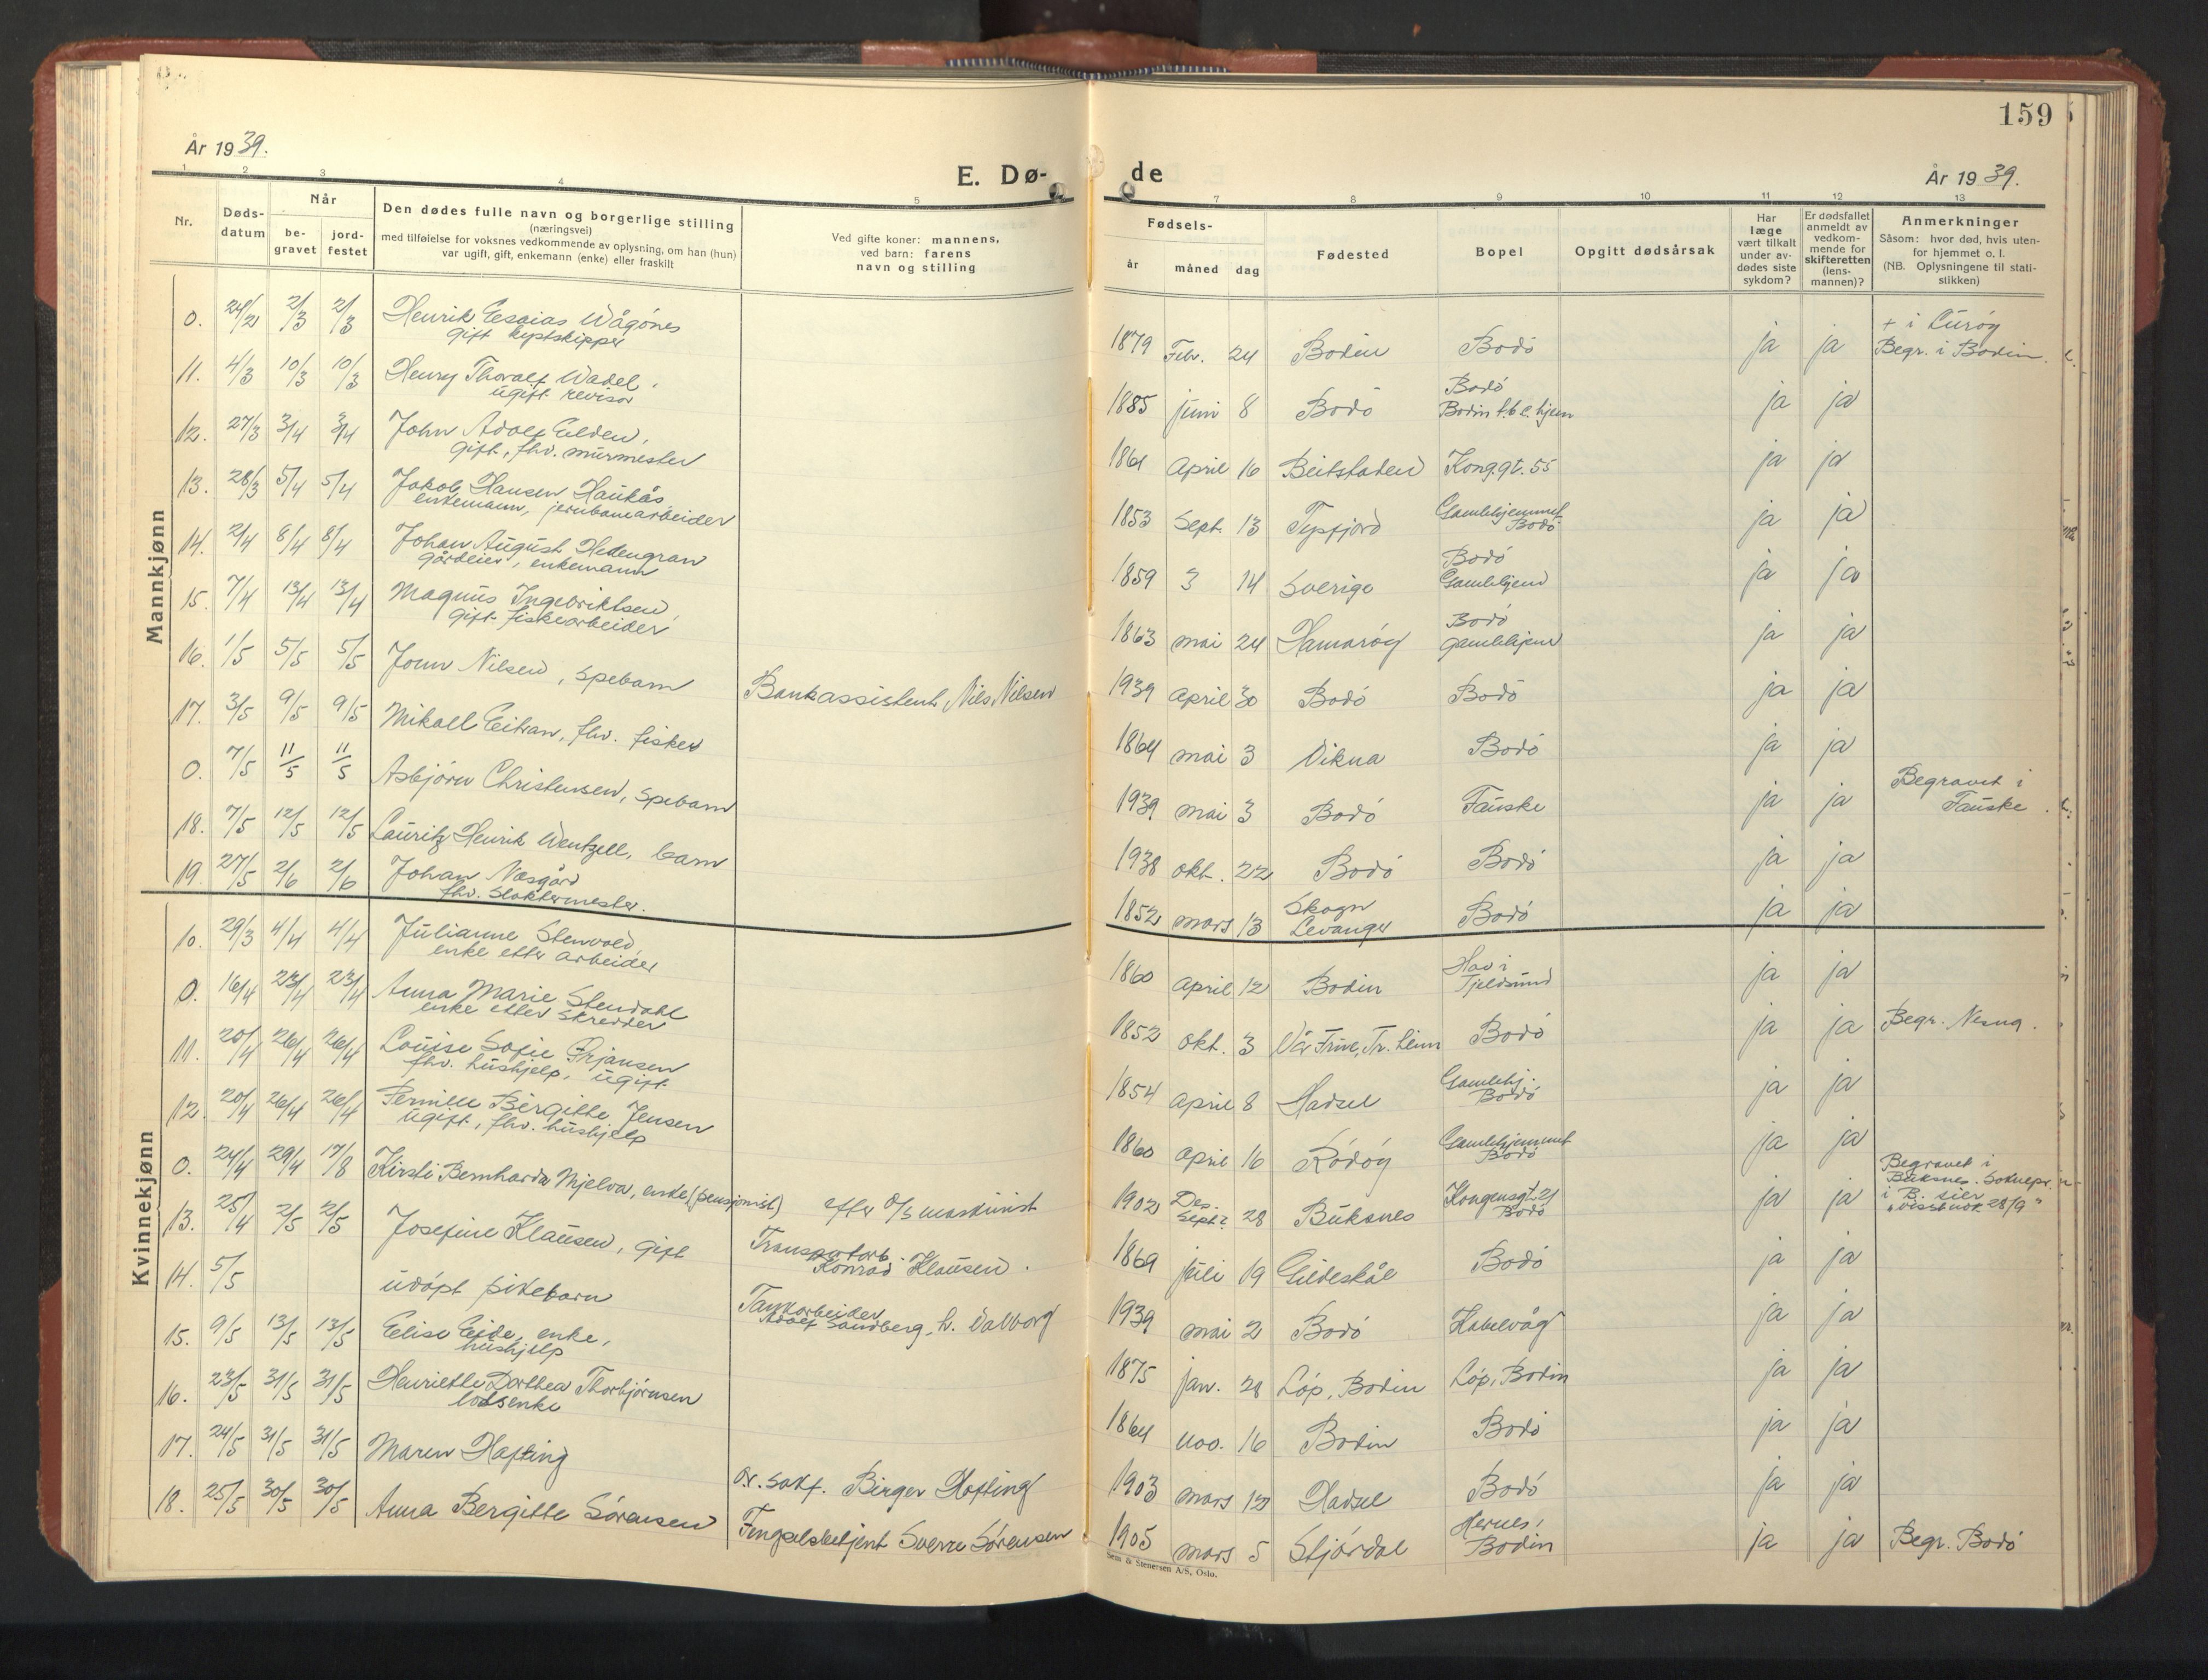 159
År 1939.
E. Dø-
de
År 1939.
1 2 3 4 5 7 8 9 10 11 12 13
Nr.
Døds-
datum
Når
be-
gravet
jord-
festet
Den dødes fulle navn og borgerlige stilling
(næringsvei)
med tilføielse for voksnes vedkommende av oplysning, om han (hun)
var ugift, gift, enkemann (enke) eller fraskilt
Ved gifte koner: mannens,
ved barn: farens
navn og stilling
Fødsels-
år måned dag
Fødested
Bopel
Opgitt dødsårsak
Har
læge
vært tilkalt
under av-
dødes siste
sykdom?
Er dødsfallet
anmeldt av
vedkom-
mende for
skifteretten
(lens-
mannen)?
Anmerkninger
Såsom: hvor død, hvis uten-
for hjemmet o. l.
(NB. Oplysningene til stati-
stikken)
Mannkjønn
0. 24/2 2/3 2/3 Henrik Esaias Wågönes
gift kyptskipper
1879 Febr. 24 Bodin Bodö ja ja + i Luröy
Begr. i Bodin.
11. 4/3 10/3 10/3 Henry Thoralf Wadel.
ugift revisor
1885 juni 8 Bodö Bodö
Bodin t.b.c. hjem ja ja
12. 27/3 3/4 3/4 John Adolf Elden,
gift, fhv. murmester
1861 April 16 Beitstaden Kong.gt. 55 ja ja
13. 28/3 5/4 5/4 Jakob Hansen Haukås
enkemann, jernbanearbeider
1853 Sept. 13 Tysfjord Gamlehjemmet
Bodö ja ja
14. 2/4 8/4 8/4 Johan August Hedengran
gårdeier, enkemann
1859 3 14 Sverige Bodö
Gamlehjem ja ja
15. 7/4 13/4 13/4 Magnus Ingebriktsen,
gift fiskearbeider
1863 mai 24 Hamaröy Bodö
gamlehjem ja ja
16. 1/5 5/5 5/5 Jonn Nilsen, spebarn
Bankassistent Nils Nilsen
1939 April 30 Bodö Bodö ja ja
17. 3/5 9/5 9/5 Mikall Eitran, fhv. fisker
1864 mai 3 Vikna Bodö ja ja
0. 7/5 11/5 11/5 Asbjörn Christensen, spebarn
1939 mai 3 Bodö Fauske ja ja Begravet i
Fauske.
18. 7/5 12/5 12/5 Lauritz Henrik Wentzell, barn
1938 okt. 22 Bodö Bodö ja ja
19. 27/5 2/6 2/6 Johan Næsgård
fhv. slaktermester.
1852 mars 13 Skogn
Levanger Bodö ja ja
Kvinnekjønn
10. 29/3 4/4 4/4 Julianne Stenvold
enke etter arbeider
1860 April 12 Bodin Hav i
Tjeldsund ja ja
0. 16/4 23/4 23/4 Anna Marie Stendahl
enke etter skredder
1852 okt. 3 Vår Frue, Tr.heim Bodö ja ja Begr. Nesna.
11. 20/4 26/4 26/4 Louise Sofie Örjansen
fhv. hushjelp, ugift
1854 April 8 Hadsel Gamlehj.
Bodö ja ja
12. 20/4 26/4 26/4 Pernille Birgitte Jensen
ugift, fhv. hushjelp
1860 April 16 Rödöy Gamlehjemmet
Bodö ja ja
0. 24/4 29/4 17/8 Kirsti Bernharda Mjelva, enke (pensjonist) efter O/S maskinist
1902 Des.
Sept? 28 Buksnes Kongensgt. 21
Bodö ja ja Begravet i
Buksnes. Soknepr.
i B. sier
"visstnok 28/9"
13. 25/4 2/5 2/5 Josefine Klausen, gift
Transportarb.
Konrad Klausen.
1869 juli 19 Gildeskål Bodö ja ja
14. 5/5 udöpt pikebarn
Tankarbeider
Adolf Sandberg, h. Valborg
1939 mai 2 Bodö Habelvåg ja ja
15. 9/5 13/5 13/5 Elise Eide, enke,
hushjelp
1875 jan. 28 Löp, Bodin Löp, Bodin ja ja
16. 23/5 31/5 31/5 Henriette Dorthea Thorbjörnsen
losenke
1864 nov. 16 Bodin Bodö ja ja
17. 24/5 31/5 31/5 Maren Hafting
O.r.sakf. Birger Hafting
1903 mars 12 Hadsel Bodö ja ja
18. 25/5 30/5 30/5 Anna Bergitte Sörensen
Fengselsbetjent Sverre Sörensen
1905 mars 5 Stjördal Hernes,
Bodin ja ja Begr. Bodö
Sem & Stenersen A/S, Oslo.